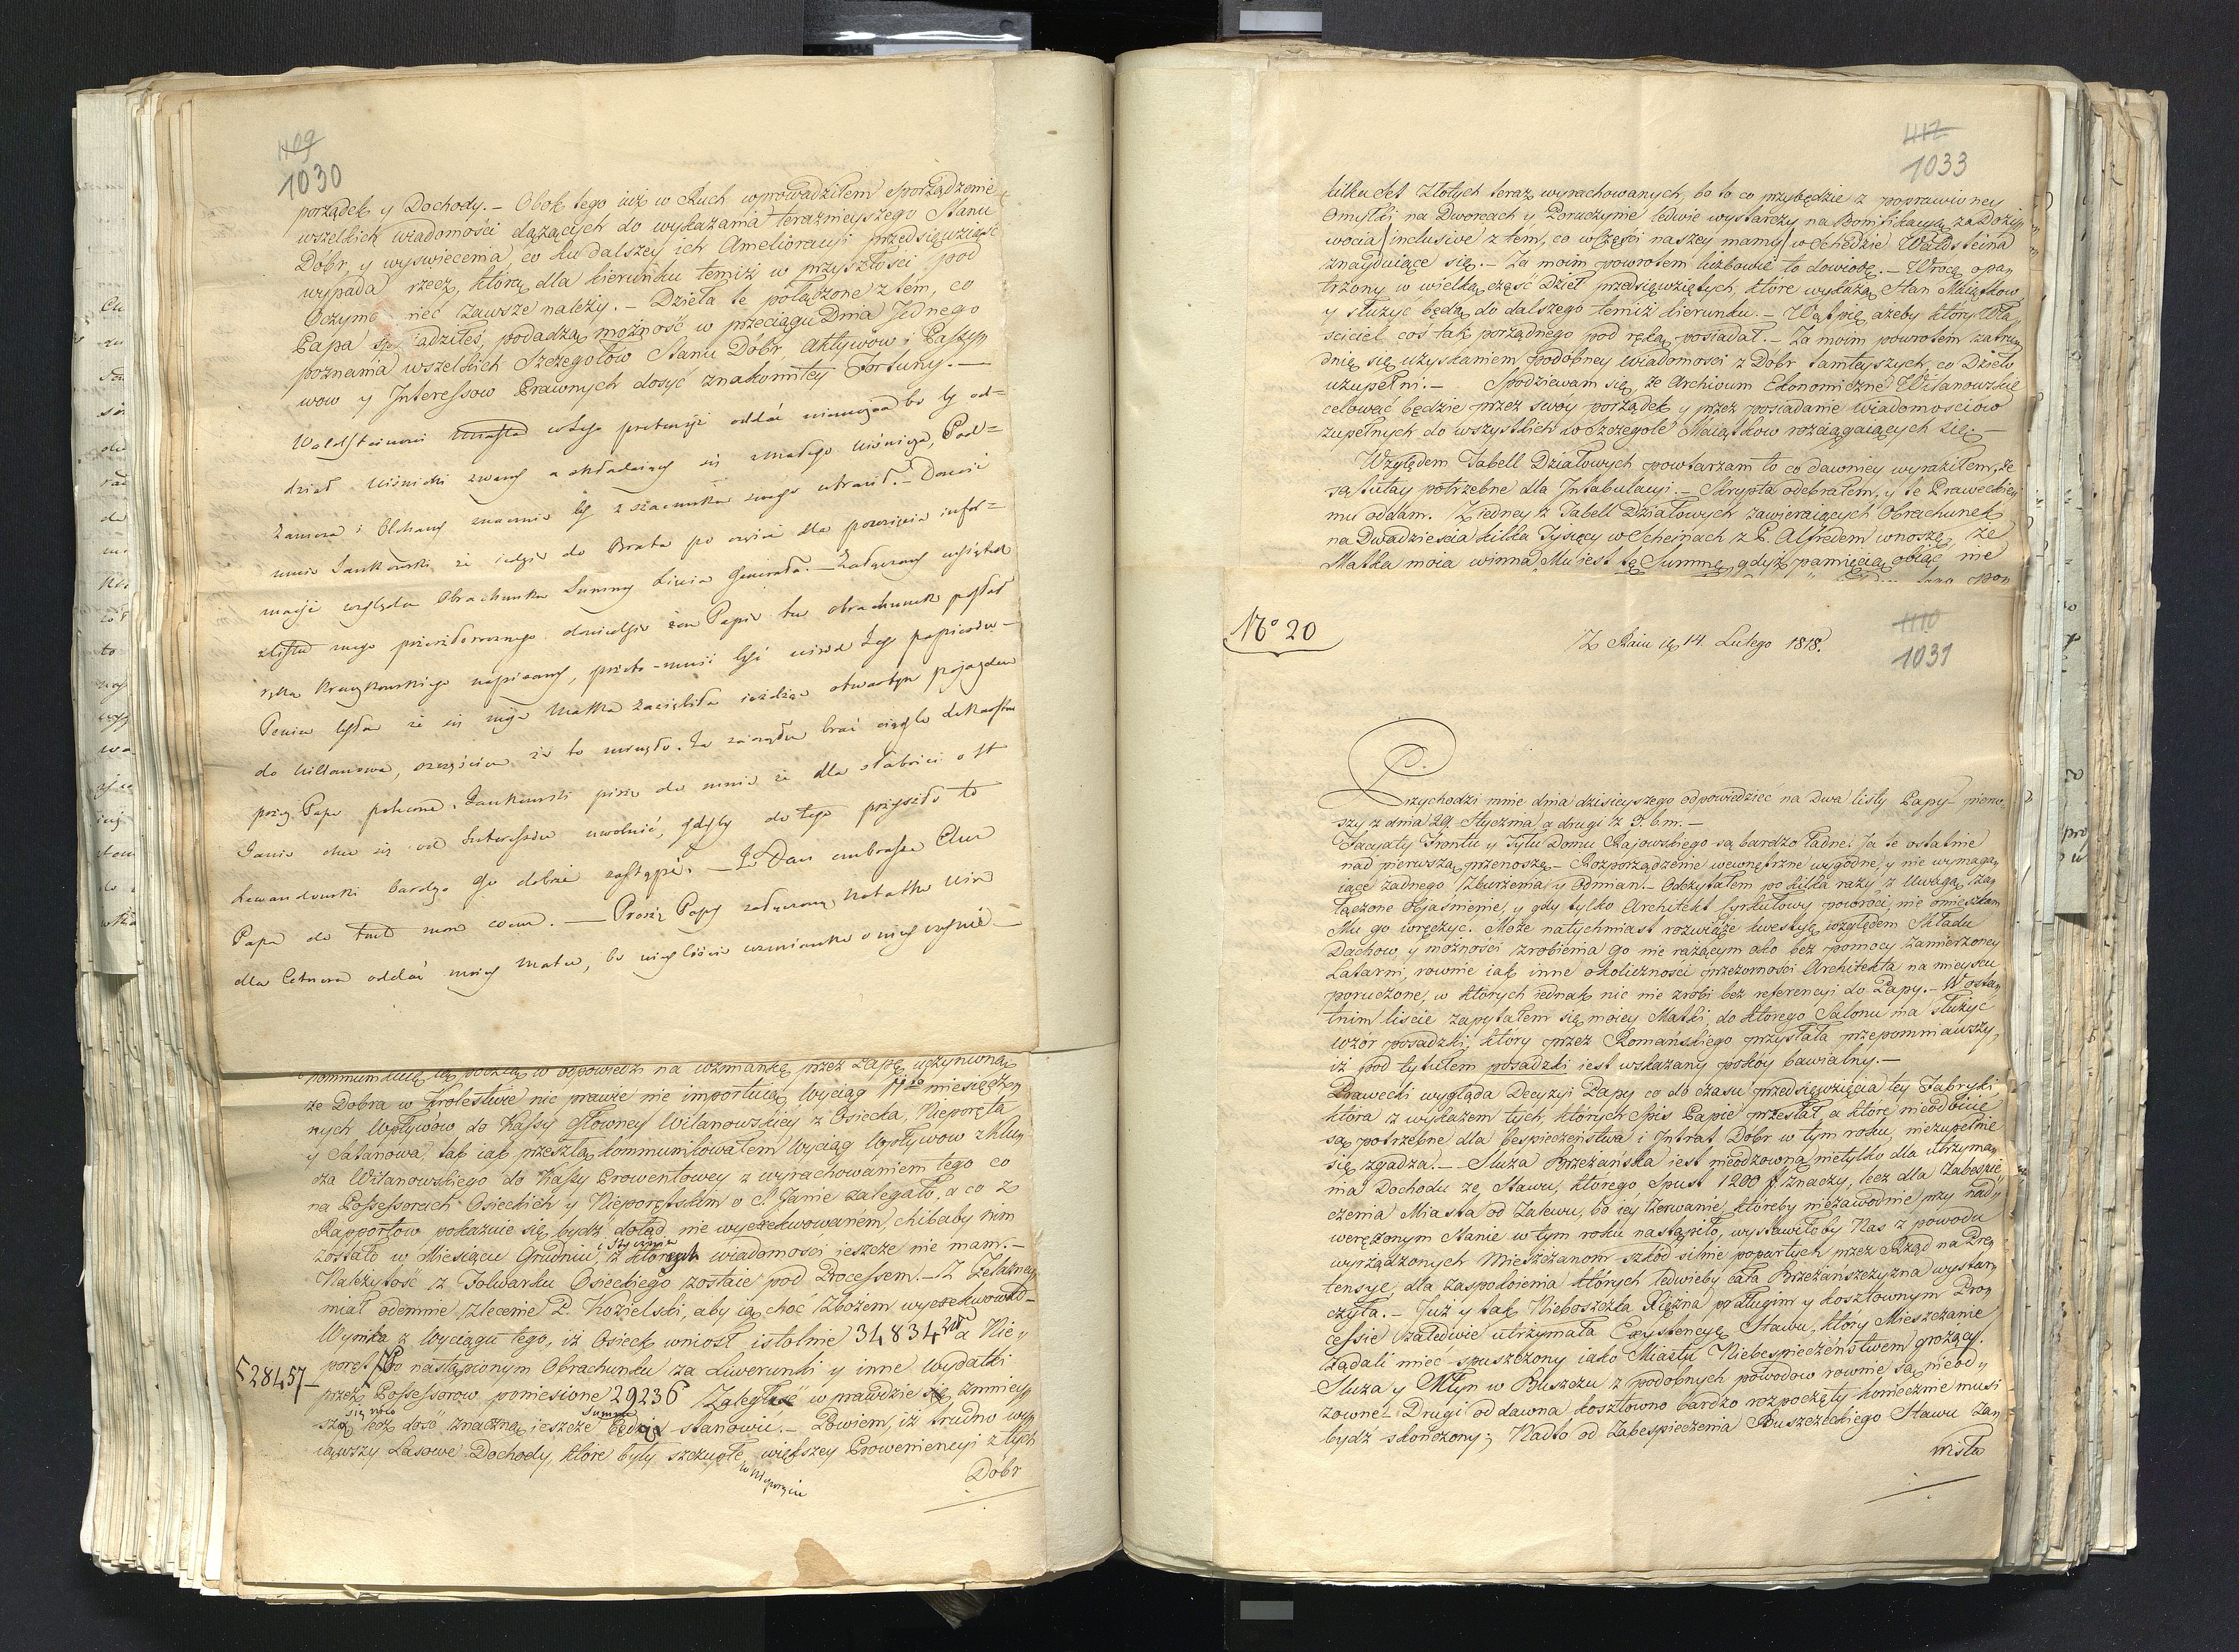 1109
1030
porządek y Dochody. – Obok tego iuż w Ruch wprowadziłem sporządzenie
wszelkich wiadomości dążących do wykazania teraznieyszego Stanu
Dóbr, y wyswiecenia, co ku dalszey ich Amelioracyi przedsięwziąść
wypada rzecz, którą dla kierunku temiż w przyszłości pod
Oczyma mieć zawsze należy. – Dzieła te połączone z tém, co
Papa adziłeś, podadzą możność w przeciągu Dnia Jednego
poznania wszelkich Szczegołów Stanu Dóbr, Aktywow i Passy
wow y Interessow Prawnych dosyć znakomitey Fortuny. –
Waldsteinowi w tego pretensyi oddać niemożna bo ty od=
dział Wiśnicki zwany a składaiący się z małego Wiśnicza, Pod=
zamcza i Olchawy znacznie by z szacunku swego utracił. – Donosi
mnie Jankowski że iedzie do Brata po czści dla powzięcia infor=
macyi względem Obrachunku Summy Liwia Generała. – Załączony wyiątek
z listu mego przeszłorocznego dowiedzie żem Papie ten obrachunek posłał
ręką Kruczkowskiego napisany, przeto musi być wśrod Jego papierów –
Pewien byłem że się moja Matka zaziębiła ieżdżąc otwartym pojazdem
do Willanowa, szczęściem że to minęło. Ja zacząłem brać ciągle lekarstwa
przez Papę polecone. Jankowski pisze do mnie że dla słabości o St
Janie chce się od Interessów uwolnić, gdyby do tego przyszło to
Lewandowski bardzo go dobrze zastąpi. – Je Vous embrasse Cher
Papa de tout mon coeur. – Proszę Papy załączoną Notatkę Win
dla Cetnera oddać moiey Matce, bo w iey liście wzmiankę o niey czynię –
kommunikuię tą pocztą w odpowiedzi na wzmiankę przez Papę uczynioną
że Dobra w Krolestwie nic prawie nie importuią, Wyciąg 11to miesięczn
nych Wpływów do Kassy Głowney Wilanowskiey z Osiecka, Nieporęta
y Satanowa, tak iak przeszłą kommunikowałem Wyciąg Wpływow z Klu
cza Wilanowskiego do Kassy Prowentowey z wyrachowaniem tego co
na Possessorach Osieckich y Nieporętskim o S. Janie zalegało, a co z
Rapportow pokazuie się bydź dotąd nie wyexekwowaném, chibaby nim
zostało w Miesiącu Grudniu i Styczniu, z których wiadomości ieszcze nie mam. –
Należytość z Folwarku Osieckiego zostaie pod Processem. – Z Żelazney
miał odemnie zlecenie P. Kozielski, aby ią choć Zbożem wyexekwował –
Wynika z Wyciągu tego, iż Osieck wniosł istotnie 34834 złt a Nie
28457 –
poręt po nastąpionym Obrachunku za Liwerunki y inne Wydatki
przez Possessorow poniesione 29236 Zaległość w prawdzie zmniey
sza się, lecz dość znaczną ieszcze Summę stanowi. – Powiem, iż trudno wy
iąwszy Lasowe Dochody, które były szczupłe w Nieporęcie większey Prowenieneyi z tych
Dóbr
412
1033
kilku set Złotych teraz wyrachowanych, bo to co przybędzie z poprawioney
omyłki na Dworcach y Poruczynie ledwie wystarczy na Bonifikacyą za Dożyy
wocia /inclusive z tém, co w Części naszey mamy/ w Schedzie Waldsteina
znayduiące się. – Za moim powrotem liczbowie to dowiodę. – Wrócę opa
trzony w wielką część Dzieł przedsięwziętych, które wykażą Stan Maiątkow
y służyć będą do dalszego temiż kierunku. – Wątpię ażeby który Wła
ściciel coś tak porządnego pod ręką posiadał. – Za moim powrotem zatru
dnię się uzyskaniem podobney Wiadomości z Dobr tamteyszych, co Dzieło
uzupełni. – Spodziewam się, że Archivum Ekonomiczne Wilanowskie
celować będzie przez swóy porządek y przez posiadanie wiadomościów
zupełnych do wszystkich w Szczegole Maiątkow rozciągaiących się. –
Względem Tabell Działowych powtarzam to co dawniey wyraziłem, że
są tutay potrzebne dla Intabulacyi. – Skrypta odebrałem, y te Praweckie
mu oddam. Z iedney z Tabell Działowych zawieraiących Obrachunek
na Dwadzieścia kilka Tysięcy w Scheinach z P. Alfredem wnoszę, że
Matka moia winna Mu iest tę Summę, gdyż pamięcią obiąć nie
No 20
1110
1031
Z Raiu dn 14. Lutego 1818.
Przychodzi mnie dnia dzisieyszego odpowiedzieć na dwa listy Papy – pierw
szy z dnia 29. Stycznia a drugi z 5. b. m. –
Facyaty Frontu y Tyłu Domu Rajowskiego są bardzo ładne; Ja te ostatnie
nad pierwszą przenoszę. – Rozporządzenie wewnętrzne wygodne, y nie wymaga
iące żadnego Zburzenia y Odmian. – Odczytałem po kilka razy z Uwagą za
łączone Objaśnienie, y gdy tylko Architekt Cyrkułowy powróci, nie omieszkam
Mu go wręczyć. Może natychmiast rozwiąże kwestyą względem Składu
Dachow, y możności zrobienia go nie rażącym oko bez pomocy zamierzoney
Latarni, rownie iak inne okoliczności przezorności Architekta na mieyscu
poruczone, w których iednak nic nie zrobi bez referencyi do Papy. – W osta
tnim liscie zapytałem się moiey Matki, do którego Salonu ma służyć
wzór posadzki, który przez Romańskiego przysłała przepomniawszy,
iż pod tytułem posadzki iest wskazany pokóy bawialny. –
Prawecki wygląda Decyzyi Papy co do czasu przedsięwzięcia tey Fabryki,
która z wykazem tych, których Spis Papie przesłał, a które nieodbicie
są potrzebne dla bespieczeństwa i Intrat Dóbr w tym roku, niezupełnie
się zgadza. – Sluza Brzeżańska iest nieodzowną nietylko dla utrzyma
nia Dochodu ze Stawu, którego Spust 1200 # znaczy, lecz dla Zabespie
czenia Miasta od Zalewu, bo iey Zerwanie, któreby niezawodnie przy nad
werężonym Stanie w tym roku nastąpiło, wystawiłoby Nas z powodu
wyrządzonych Mieszczanom szkód silnie popartych przez Rząd na Pre
tensye, dla zaspokoienia których ledwieby cała Brzeżańszczyzna wystar
czyła. – Już y tak Nieboszczka Xiężna po długim y kosztownym Pro
cessie zaledwie utrzymała Exystencyę Stawu, który Mieszczanie
żądali mieć spuszczony iako Miastu Niebespieczeństwem grożący.
Sluza y Młyn w Buszczu z podobnych powodow rownie są nieod
zowne – Drugi od dawna kosztowno bardzo rozpoczęty koniecznie musi
bydź skończony; Nadto od Zabespieczenia Buszczeckiego Stawu Za
wisła